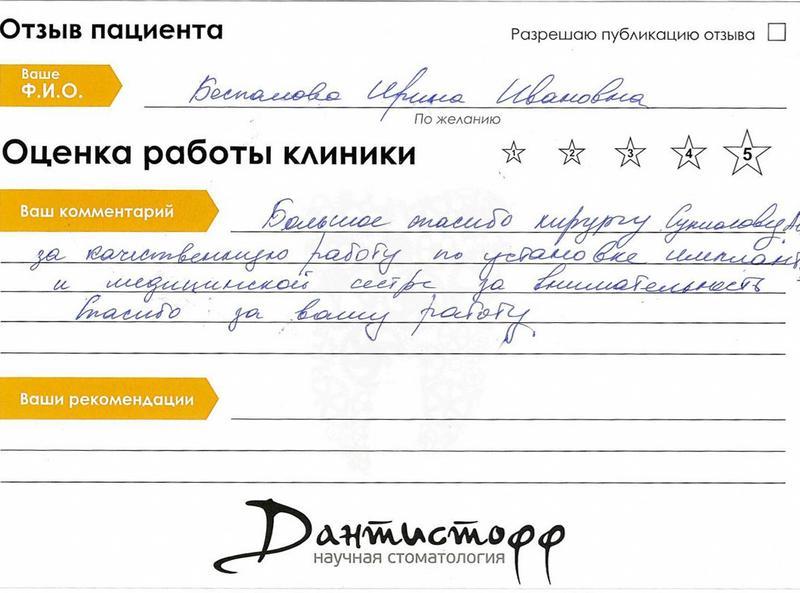 Отзыв пациента
Разрешаю публикацию отзыва
Ваше
Ф.И.О.
Беспалова Ирина Ивановна
По желанию
Оценка работы клиники
1 2 3 4 5
Ваш комментарий
Большое спасибо хирургу
за качественную работу по установке имплант
и медицинской сестре за внимательность
Спасибо за вашу работу.
Ваши рекомендации
Дантистофф
научная стоматология